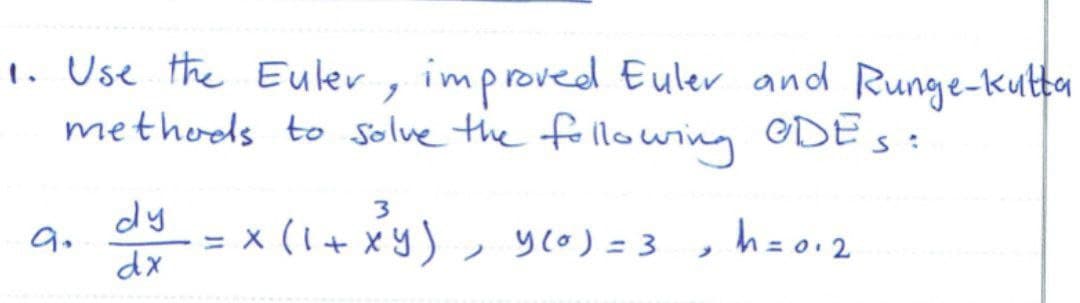 1. Use the Euler, improved Euler and Runge-kutta
methods to solve the following ODEs:
a. dy/dx = x (1 + x³y), y(0) = 3, h = 0.2